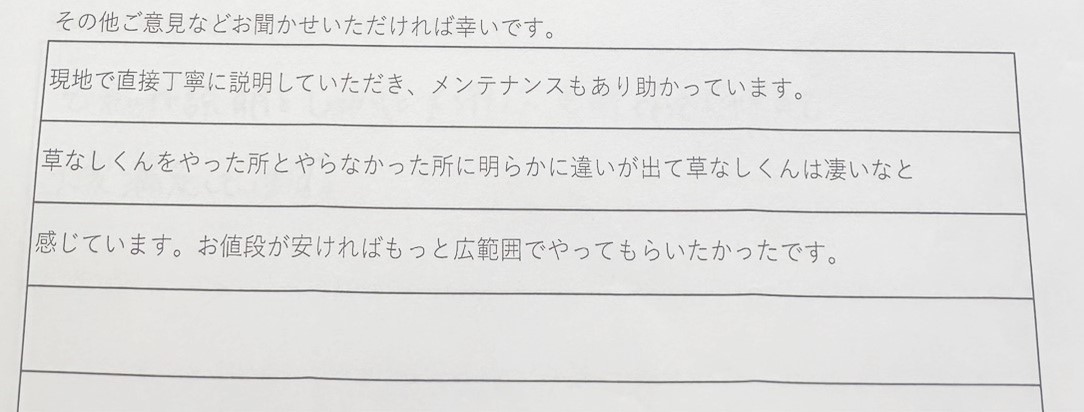 その他ご意見などお聞かせいただければ幸いです。
現地で直接丁寧に説明していただき、メンテナンスもあり助かっています。
草なしくんをやった所とやらなかった所に明らかに違いが出て草なしくんは凄いなと
感じています。お値段が安ければもっと広範囲でやってもらいたかったです。